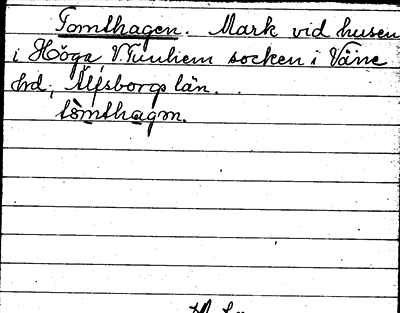 Tomthagen. Mark vid husen
i Höga, V. Tunhem socken i Väne
hrd, Älfsborgs län.
tòmthagɘn.